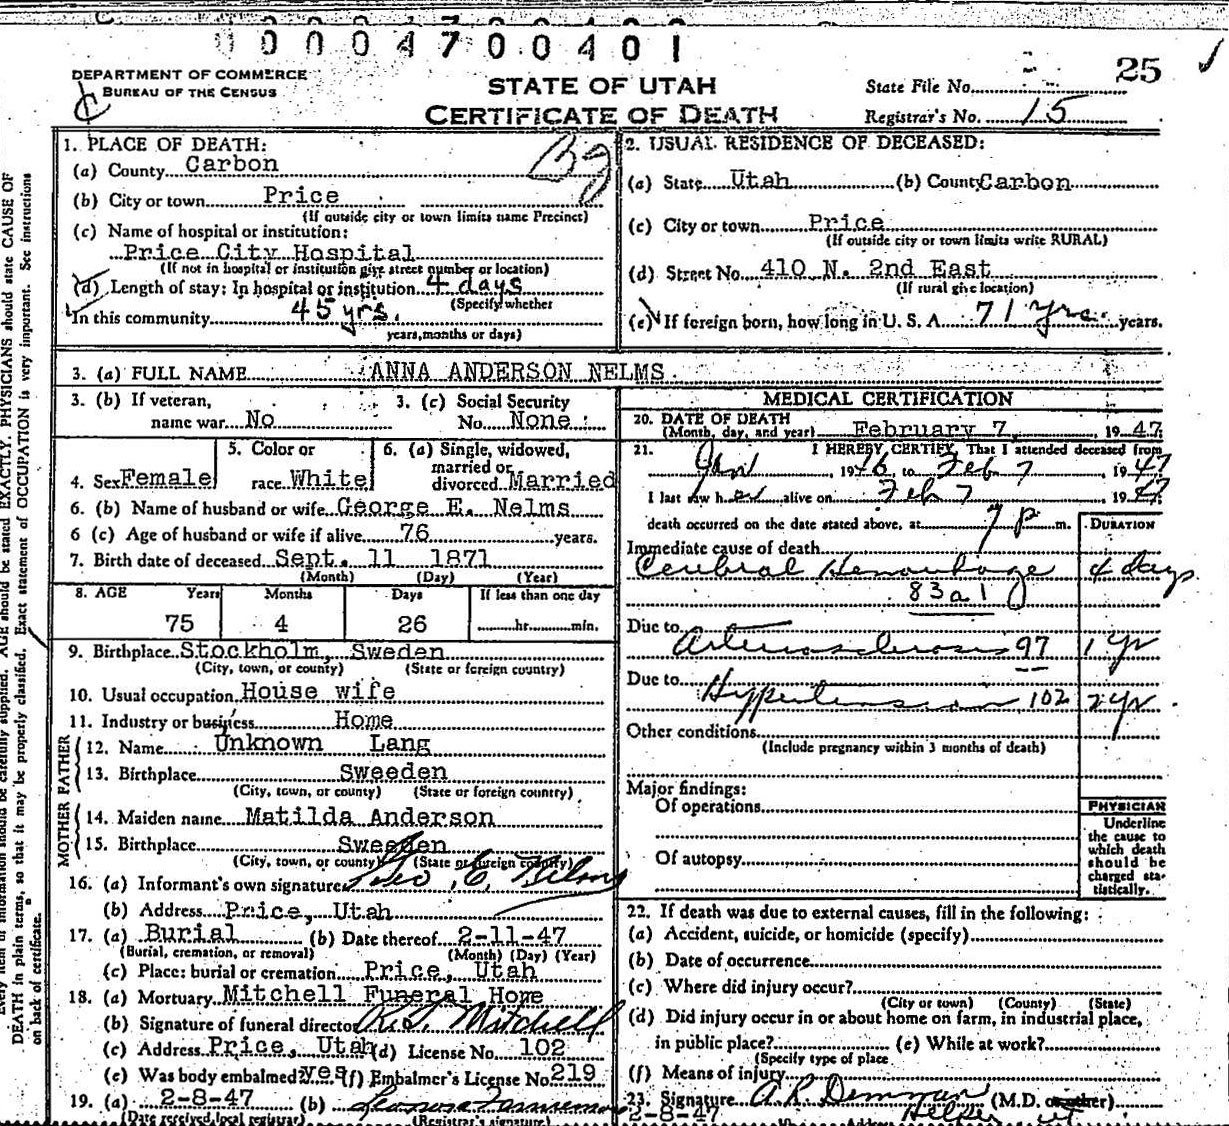 0 0 0 4 7 0 0 4 0 1
25
DEPARTMENT OF COMMERCE
BUREAU OF THE CENSUS
STATE OF UTAH
CERTIFICATE OF DEATH
State File No.
Registrar's No. 15
1. PLACE OF DEATH:
(a) County Carbon
(b) City or town Price
(If outside city or town limits name Precinct)
(c) Name of hospital or institution:
Price City Hospital
(If not in hospital or institution give street number or location)
(d) Length of stay: In hospital or institution 4 days
(Specify whether
In this community 45 yrs.
years, months or days)
2. USUAL RESIDENCE OF DECEASED:
(a) State Utah (b) County Carbon
(c) City or town Price
(If outside city or town limits write RURAL)
(d) Street No. 410 N. 2nd East
(If rural give location)
(e) If foreign born, how long in U. S. A. 71 yrs. years.
3. (a) FULL NAME ANNA ANDERSON NELMS
3. (b) If veteran,
name war No
3. (c) Social Security
No. None
4. Sex Female
5. Color or
race White
6. (a) Single, widowed,
married or
divorced Married
6. (b) Name of husband or wife George E. Nelms
6 (c) Age of husband or wife if alive 76 years.
7. Birth date of deceased Sept. 11 1871
(Month) (Day) (Year)
8. AGE Years Months Days If less than one day
75 4 26 hr. min.
9. Birthplace Stockholm, Sweden
(City, town, or county) (State or foreign country)
10. Usual occupation House wife
11. Industry or business Home
FATHER
12. Name Unknown Lang
13. Birthplace Sweeden
(City, town, or county) (State or foreign country)
MOTHER
14. Maiden name Matilda Anderson
15. Birthplace Sweeden
(City, town, or county) (State or foreign country)
16. (a) Informant's own signature Geo. E. Nelms
(b) Address Price, Utah
17. (a) Burial (b) Date thereof 2-11-47
(Burial, cremation, or removal) (Month) (Day) (Year)
(c) Place: burial or cremation Price, Utah
18. (a) Mortuary Mitchell Funeral Home
(b) Signature of funeral director R. L. Mitchell
(c) Address Price, Utah (d) License No. 102
(e) Was body embalmed? yes (f) Embalmer's License No. 219
19. (a) 2-8-47 (b)
(Date received local registrar) (Registrar's signature)
MEDICAL CERTIFICATION
20. DATE OF DEATH
(Month, day, and year) February 7, 1947
21. I HEREBY CERTIFY, That I attended deceased from
Jan 1946 to Feb 7 1947
I last saw her alive on Feb 7 1947
death occurred on the date stated above, at 7 p m.
DURATION
Immediate cause of death
Cerebral Hemorrhage 4 days
83a1
Due to
Arteriosclerosis 97 1 yr
Due to
Hypertension 102 2 yr
Other conditions
(Include pregnancy within 3 months of death)
Major findings:
Of operations
Of autopsy
PHYSICIAN
Underline
the cause to
which death
should be
charged sta-
tistically.
22. If death was due to external causes, fill in the following:
(a) Accident, suicide, or homicide (specify)
(b) Date of occurrence
(c) Where did injury occur?
(City or town) (County) (State)
(d) Did injury occur in or about home on farm, in industrial place,
in public place? (e) While at work?
(Specify type of place
(f) Means of injury
23. Signature A. R. Demman (M.D. or other)
2-8-47 Helper Ut
Address
Every item of information should be carefully supplied. AGE should be stated EXACTLY. PHYSICIANS should state CAUSE OF
DEATH in plain terms, so that it may be properly classified. Exact statement of OCCUPATION is very important. See instructions
on back of certificate.